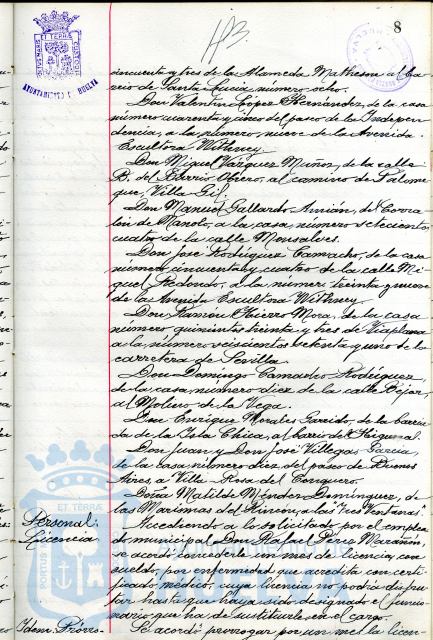 8
113
AYUNTAMIENTO DE HUELVA
cincuenta y tres de la Alameda Matheson al ba-
rrio de Santa Lucía, número ocho.
Don Valentín López Hernández, de la casa
número cuarenta y cinco del paseo de la Indepen-
dencia, a la número nueve de la Avenida
Escultora Withney.
Don Miguel Vázquez Muñoz, de la calle
B. del Barrio Obrero, al camino de Palome
que, Villa Gil.
Don Manuel Gallardo, del Corra
lón de Manolo, a la casa número setecientos
cuatro de la calle Monsalves.
Don José Rodríguez Camacho, de la casa
número cincuenta y cuatro de la calle Mi
guel Redondo, a la número treinta y nueve
de la Avenida Escultora Withney.
Don Ramón Hierro Mora, de la casa
número quinientos treinta y tres de Viaplana
a la número seiscientos setenta y uno de la
carretera de Sevilla.
Don Domingo Camacho Rodríguez,
de la casa número diez de la calle Béjar,
al Molino de la Vega.
Don Enrique Morales Garrido, de la barria
da de la Isla Chica, al barrio del Higueral.
Don Juan y Don José Villegas García,
de la casa número diez del paseo de Buenos
Aires, a Villa Rosa del Conquero.
Doña Matilde Méndez Domínguez, de
las Marismas del Pinzón, a las "Tres Ventanas".
Personal:
Licencia
Accediendo a lo solicitado por el emplea
do municipal Don Rafael Pérez Marañón,
se acordó concederle un mes de licencia, con
sueldo, por enfermedad que acredita con certi
ficado médico, cuya licencia no podrá disfru
tar hasta que haya sido designado el funcio
nario que ha de sustituirle en el cargo.
Idem. Prórro-
Se acordó prorrogar por un mes la licen